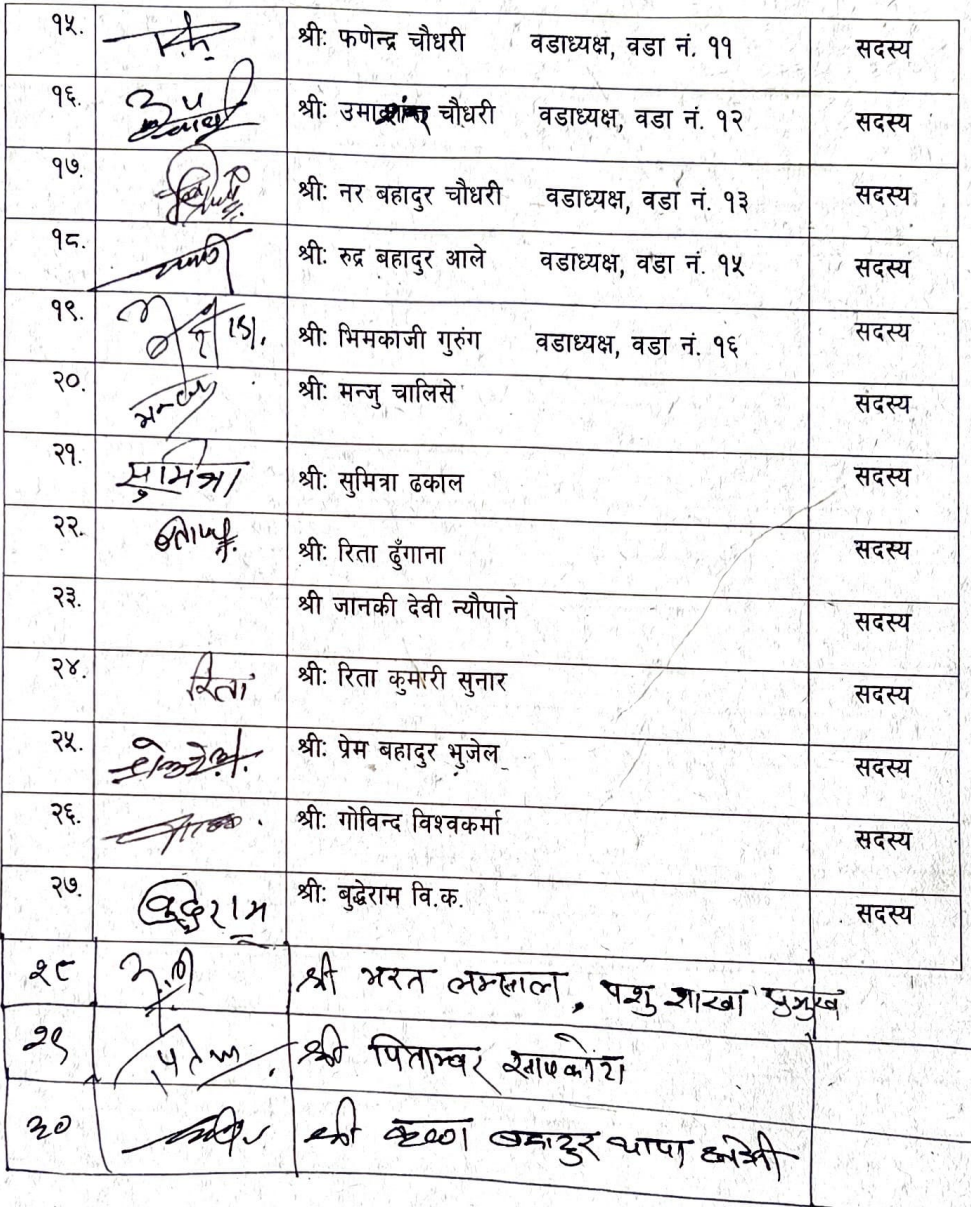 १५. श्री: फणेन्द्र चौधरी वडाध्यक्ष, वडा नं. ११ सदस्य
१६. श्री: उमाशंकर चौधरी वडाध्यक्ष, वडा नं. १२ सदस्य
१७. श्री: नर बहादुर चौधरी वडाध्यक्ष, वडा नं. १३ सदस्य
१८. श्री: रुद्र बहादुर आले वडाध्यक्ष, वडा नं. १५ सदस्य
१९. श्री: भिमकाजी गुरुंग वडाध्यक्ष, वडा नं. १६ सदस्य
२०. श्री: मन्जु चालिसे सदस्य
२१. सुमित्रा श्री: सुमित्रा ढकाल सदस्य
२२. श्री: रिता ढुँगाना सदस्य
२३. श्री जानकी देवी न्यौपाने सदस्य
२४. रिता श्री: रिता कुमारी सुनार सदस्य
२५. श्री: प्रेम बहादुर भुजेल सदस्य
२६. श्री: गोविन्द विश्वकर्मा सदस्य
२७. बुद्धेराम श्री: बुद्धेराम वि.क. सदस्य
२८ श्री भरत लम्साल, पशु शाखा प्रमुख
२९ श्री पिताम्बर सापकोटा
३० श्री कृष्ण बहादुर थापा क्षेत्री